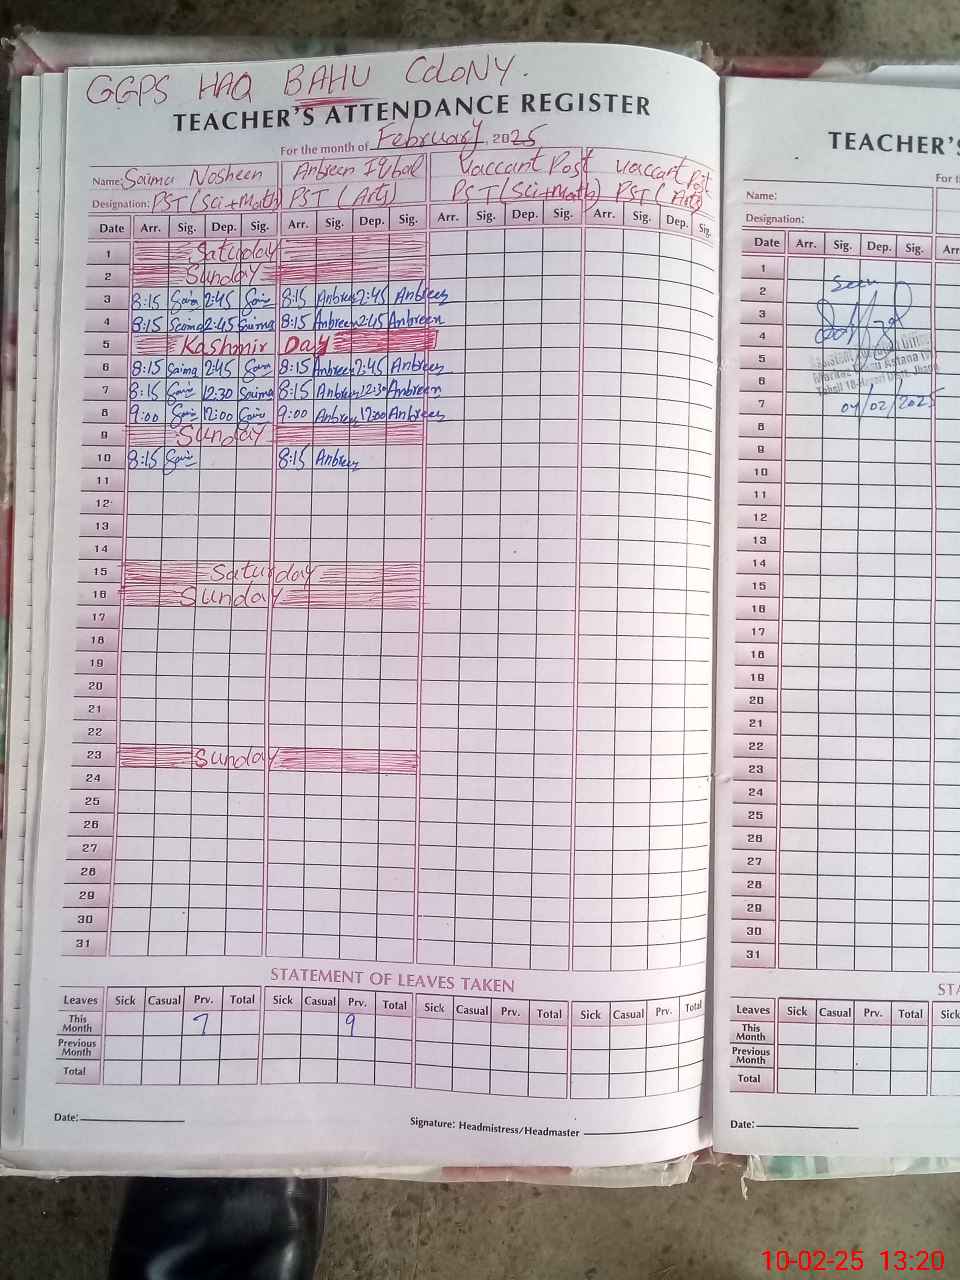 GGPS HAQ BAHU COLONY.
TEACHER'S ATTENDANCE REGISTER
For the month of February, 2025
Name: Saima Nosheen Anbreen Iqbal Vaccant Post Vaccant Post
Designation: PST (Sci+Math) PST (Arts) PST (Sci+Math) PST (Arts)
Date Arr. Sig. Dep. Sig. Arr. Sig. Dep. Sig. Arr. Sig. Dep. Sig. Arr. Sig. Dep. Sig.
1 Saturday
2 Sunday
3 8:15 Saima 2:45 Saima 8:15 Anbreen 2:45 Anbreen
4 8:15 Saima 2:45 Saima 8:15 Anbreen 2:45 Anbreen
5 Kashmir Day
6 8:15 Saima 2:45 Saima 8:15 Anbreen 2:45 Anbreen
7 8:15 Saima 12:30 Saima 8:15 Anbreen 12:30 Anbreen
8 9:00 Saima 12:00 Saima 9:00 Anbreen 12:00 Anbreen
9 Sunday
10 8:15 Saima 8:15 Anbreen
11
12
13
14
15 Saturday
16 Sunday
17
18
19
20
21
22
23 Sunday
24
25
26
27
28
29
30
31
STATEMENT OF LEAVES TAKEN
Leaves Sick Casual Prv. Total Sick Casual Prv. Total Sick Casual Prv. Total Sick Casual Prv. Total
This Month 7 9
Previous Month
Total
Date: Signature: Headmistress/Headmaster
TEACHER'S
For th
Name:
Designation:
Date Arr. Sig. Dep. Sig. Arr.
1
2 Seen
3
4
5
6
7 04/02/2025
8
9
10
11
12
13
14
15
16
17
18
19
20
21
22
23
24
25
26
27
28
29
30
31
STA
Leaves Sick Casual Prv. Total Sick
This Month
Previous Month
Total
Date:
10-02-25 13:20